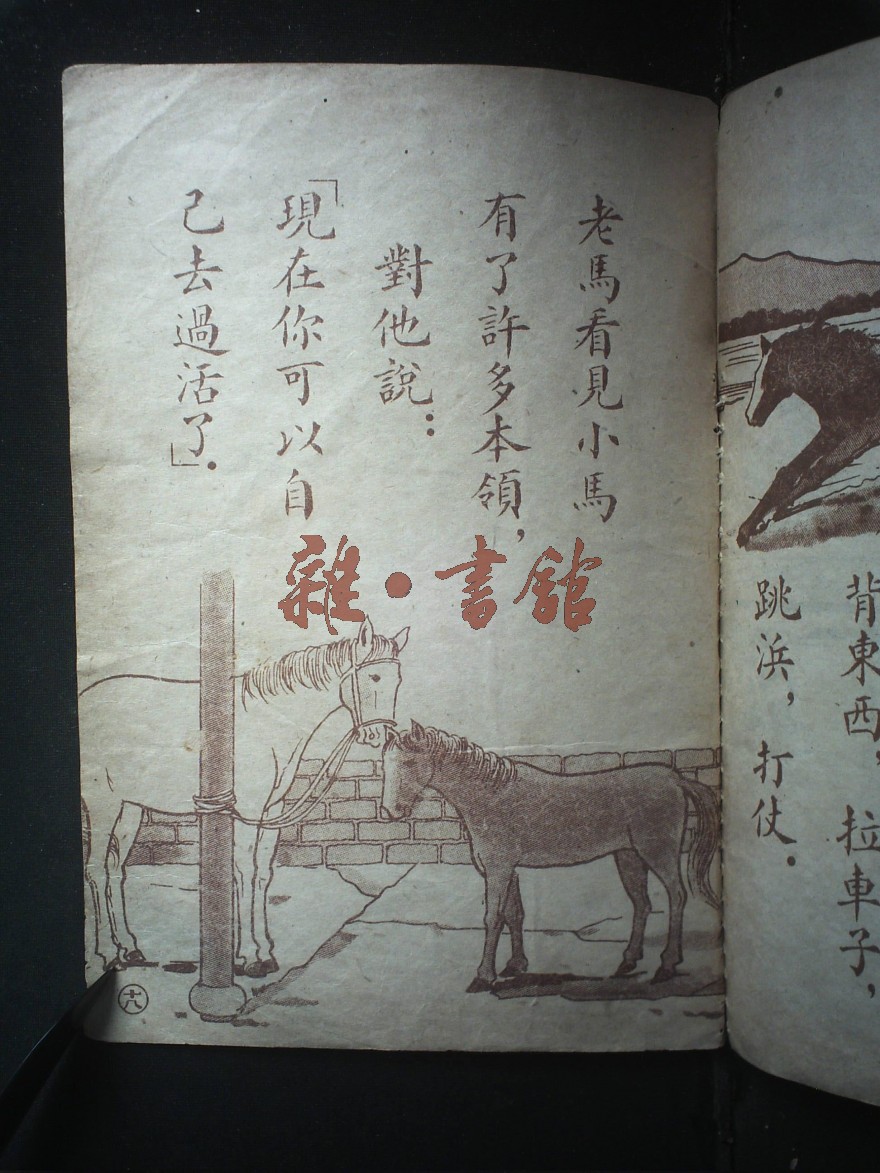 背東西，拉車子，
跳浜，打仗．
老馬看見小馬
有了許多本領，
對他說：
「現在你可以自
己去過活了」．
雜●書館
十八